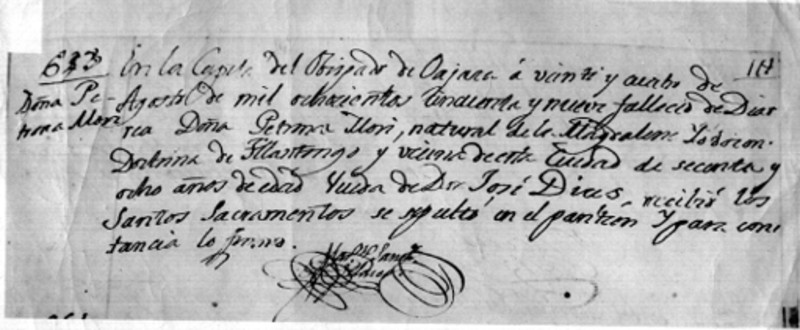 633
Doña Pe-
trona Mori
111
En la Capital del Obispado de Oajaca á veinte y cuatro de
Agosto de mil ochocientos cincuenta y nueve fallecio de Diar
rea Doña Petrona Mori, natural de la Magdalena Yodocon.
Doctrina de Tilantongo y vecina de esta Ciudad de secenta y
ocho años de edad Viuda de Dn José Dias, recibió los
Santos Sacramentos se sepultó en el panteon Y para cons
tancia lo firmo.